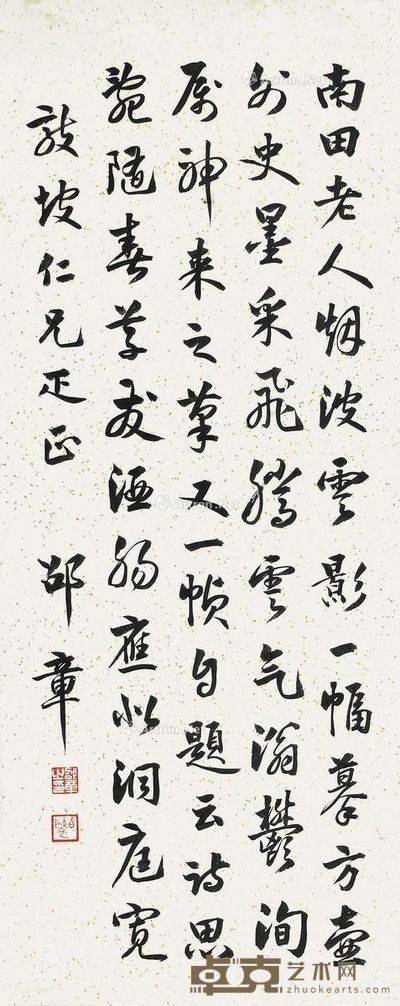 南田老人烟波雲影一幅摹方壺
外史墨采飛騰雲气滃鬱洵
属神来之筆又一幀自題云詩思
隨春草 酒腸應似洞庭寬
坡仁兄疋正 邵章
Artron.Net
卓克艺术网
zhuokearts.com